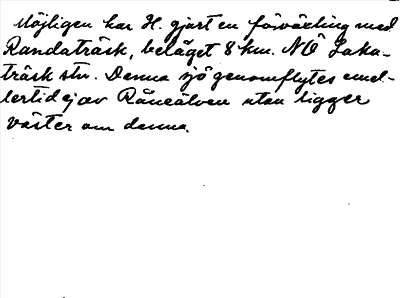 Möjligen har H. gjort en förväxling med
Randaträsk, beläget 8 km. NÖ Laka-
träsk stn. Denna sjö genomflytes emel-
lertid ej av Råneälven utan ligger
väster om denna.